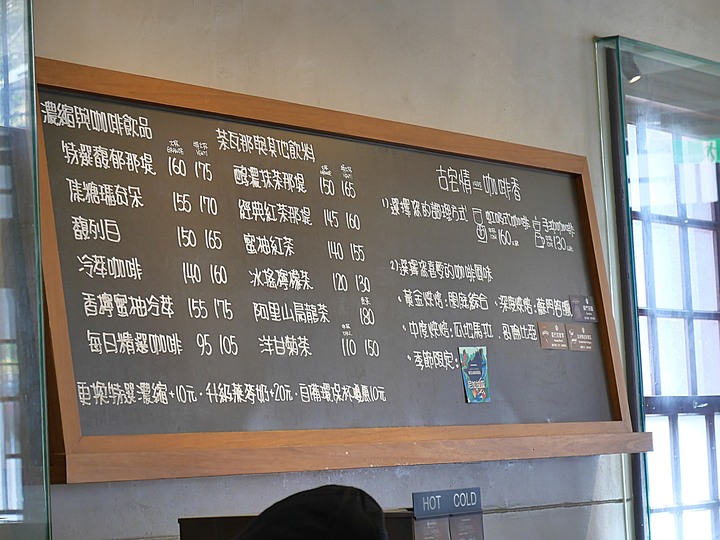 濃縮與咖啡飲品
大杯 GRANDE 特大杯 VENTI
特選馥郁那堤 160 175
焦糖瑪奇朵 155 170
馥列白 150 165
冷萃咖啡 140 160
香檸蜜柚冷萃 155 175
每日精選咖啡 95 105
茶瓦那與其他飲料
大杯 特大杯
醇濃抹茶那堤 150 165
經典紅茶那堤 145 160
蜜柚紅茶 140 155
冰搖檸檬茶 120 130
阿里山烏龍茶 180
洋甘菊茶 110 150
更換特選濃縮+10元·升級燕麥奶+20元·自備環保杯優惠10元
古宅情 咖啡香
1)選擇您的調理方式 虹吸式咖啡 160 手沖咖啡 130
2)選擇您喜愛的咖啡風味
·黃金烘焙:閑庭綜合 ·深度烘焙:蘇門答臘
·中度烘焙:瓜地馬拉 .哥倫比亞
·季節限定:
HOT COLD